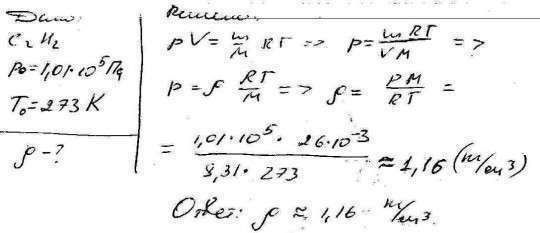 Дано:
C₂H₂
p₀=1,01·10⁵Па
T₀=273 K
ρ-?
Решение:
pV= m/M RT => p= mRT/VM =>
p=ρ RT/M => ρ= PM/RT =
= 1,01·10⁵·26·10⁻³ / 8,31·273 ≈ 1,16 (кг/м³)
Ответ: ρ ≈ 1,16 кг/м³.